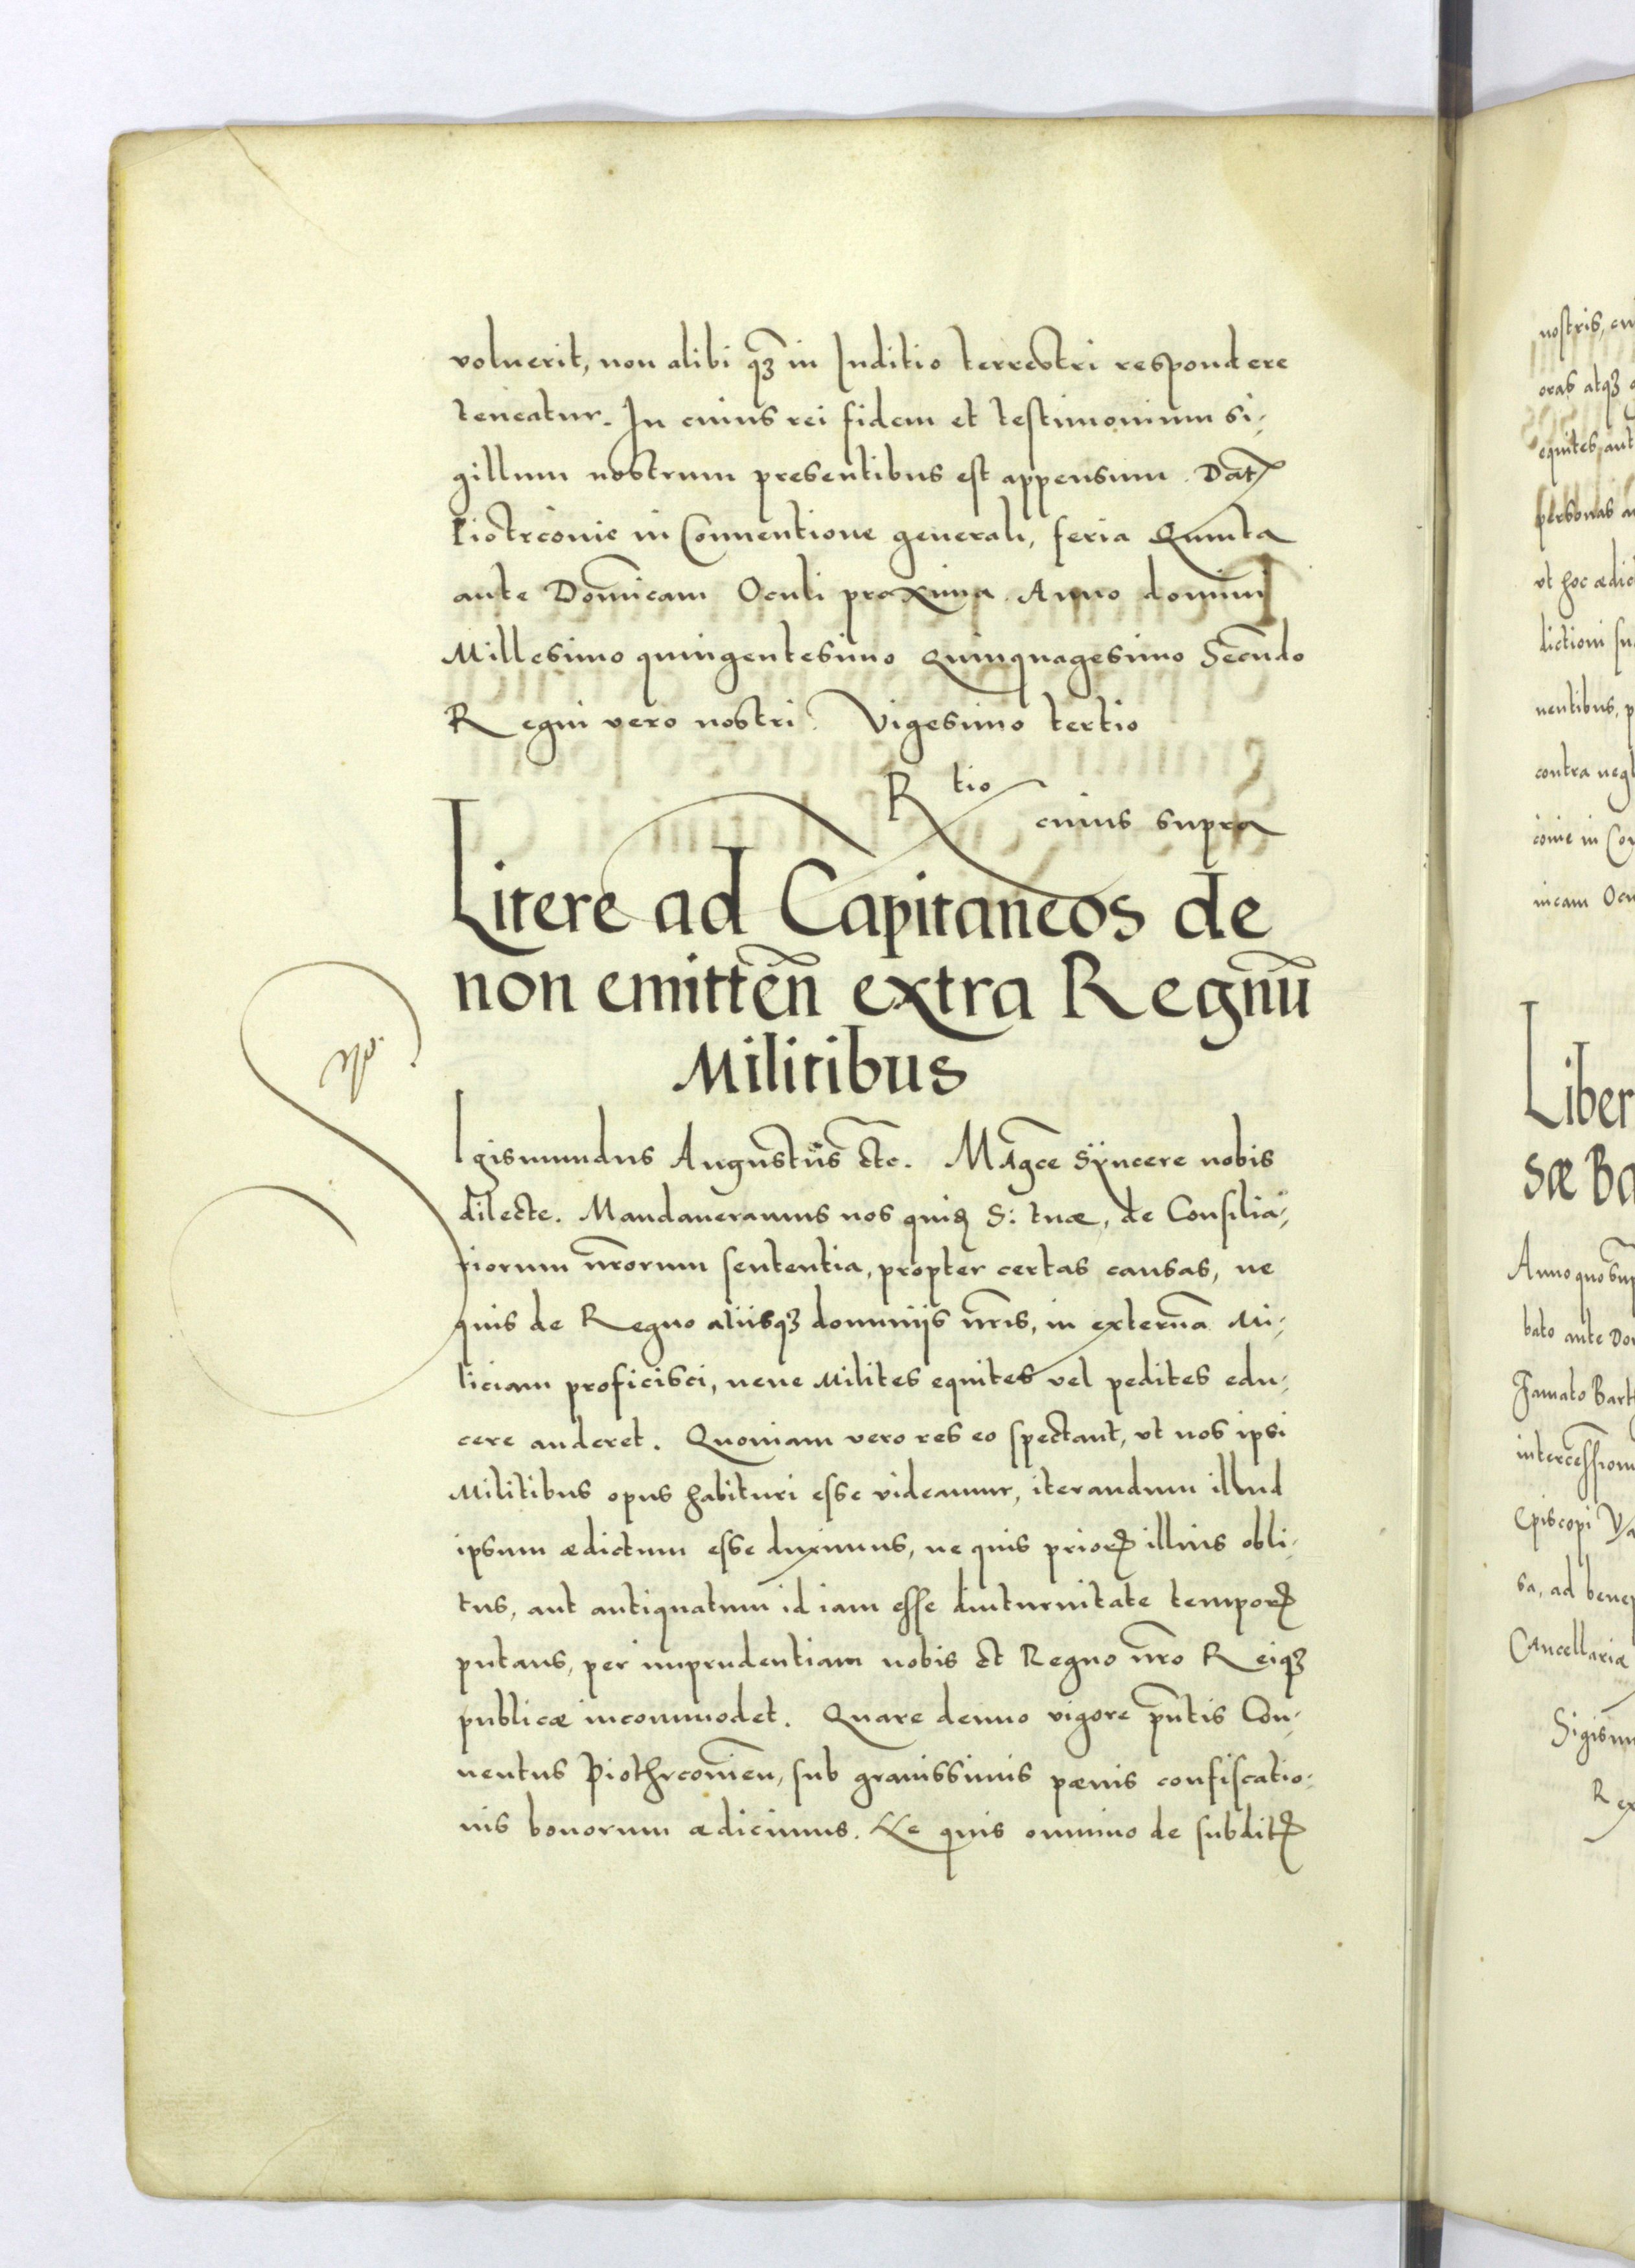 voluerit, non alibi qꝫ in Iuditio terrestri respondere
teneatur. In cuius rei fidem et testimonium si-
gillum nostrum presentibus est appensum. Datꝭ
Piotrcouie in Conuentione generali, feria Quinta
ante Domīcam Oculi proxima. Anno domini
Millesimo quingentesimo Quinquagesimo Secūdo
Regni vero nostri Vigesimo tertio
Rtio
cuius supra
Litere ad Capitaneos de
non emitteñ extra Regnū
Militibus
Sigismundus Augustus etc. Magce Syncere nobis
dilecte. Mandaueramus nos quidē S: tuæ, de Consilia-
riorum nrorum sententia, propter certas causas, ne
quis de Regno aliisqꝫ dominijs nris, in externā Mi-
liciam proficisci, neue Milites equites vel pedites edu-
cere auderet. Quoniam vero res eo spectant, vt nos ipsi
Militibus opus habituri esse videamur, iterandum illud
ipsum ædictum esse duximus, ne quis priorꝭ illius obli-
tus, aut antiquatum id iam esse diuturnitate temporꝭ
putans, per imprudentiam nobis et Regno nro Reiqꝫ
publicæ incommodet. Quare denuo vigore pntis Con-
uentus Piothrcouieñ, sub grauissimis pænis confiscatio-
nis bonorum ædicimus. Ne quis omnino de subditꝭ
nostris,
oras atqꝫ
equites aut
personas
vt hoc ædic
dictioni
uentibus,
contra
couie in
nicam
Liber
sæ Ba
Anno quo
bato ante
Famato
Episcopi
sa, ad
Cancellariæ
Sigism
Rex